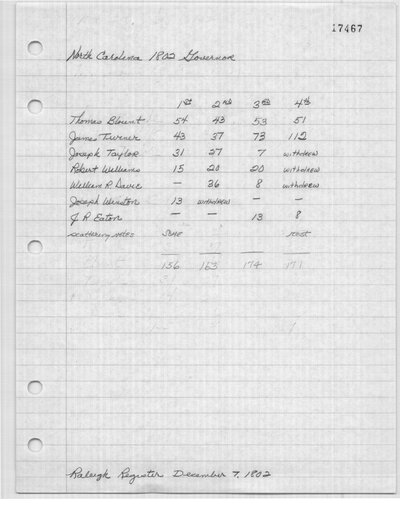 17467
North Carolina 1802 Governor
1st 2nd 3rd 4th
Thomas Blount 54 43 53 51
James Turner 43 37 73 112
Joseph Taylor 31 27 7 withdrew
Robert Williams 15 20 20 withdrew
William R. Davie — 36 8 withdrew
Joseph Winston 13 withdrew — —
J. R. Eaton — — 13 8
scattering votes some rest
156 163 174 171
Raleigh Register December 7, 1802